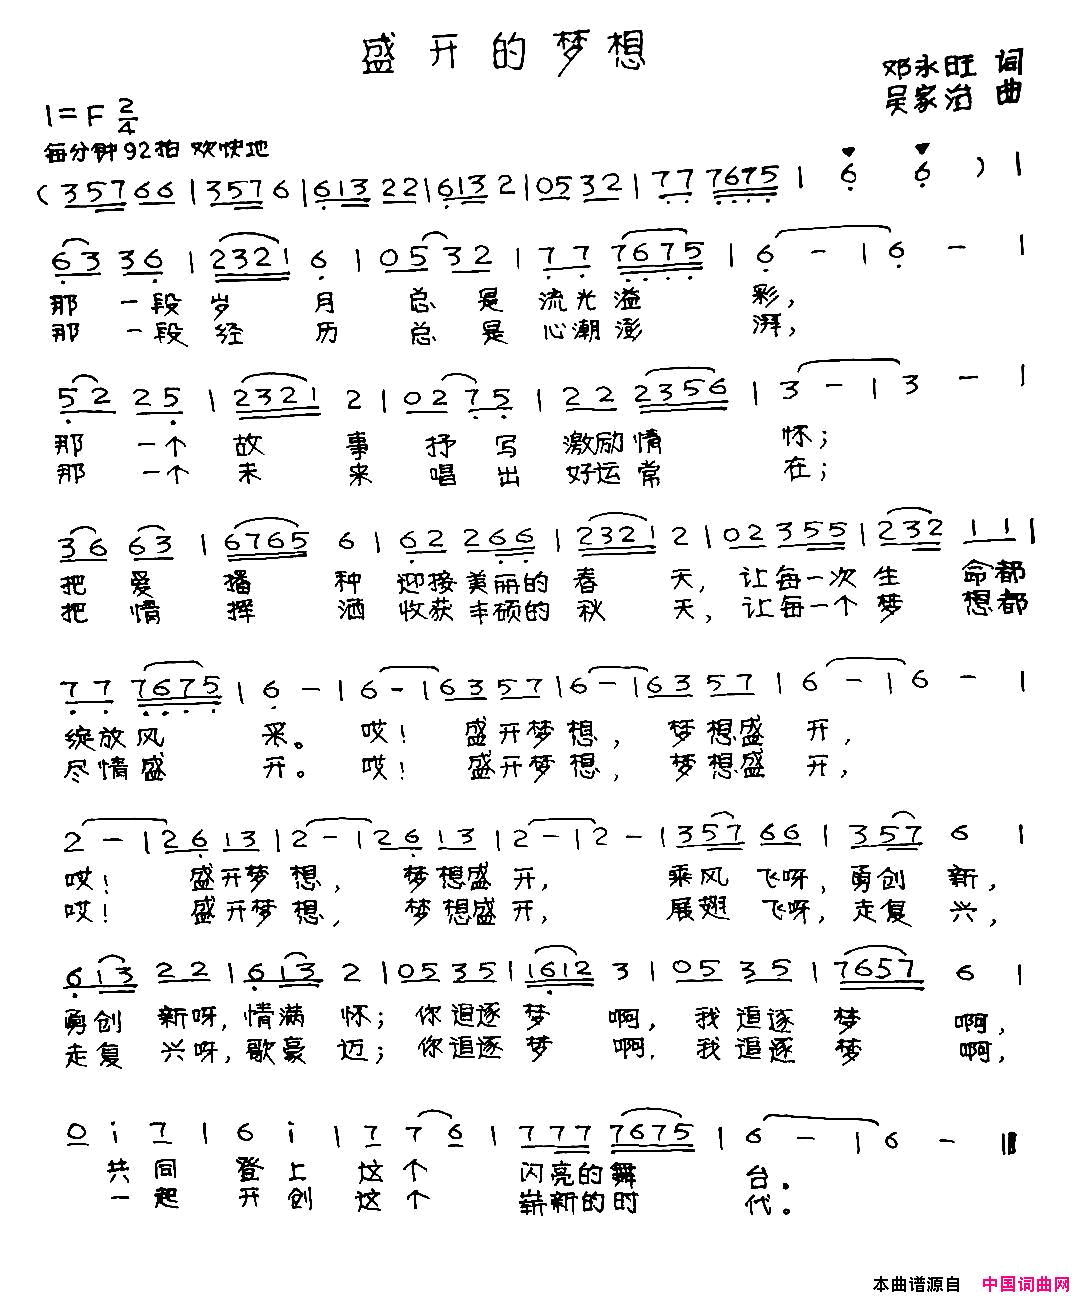 盛开的梦想
邓永旺 词
吴家治 曲
1=F 2/4
每分钟92拍 欢快地
(357 66 | 357 6 | 613 22 | 613 2 | 0532 | 77 7675 | 6 6 ) |
63 36 | 2321 6 | 0532 | 77 7675 | 6 - | 6 - |
那一段岁月总是流光溢彩,
那一段经历总是心潮澎湃,
52 25 | 2321 2 | 0275 | 22 2356 | 3 - | 3 - |
那一个故事抒写激励情怀;
那一个未来唱出好运常在;
36 63 | 6765 6 | 62 266 | 2321 2 | 02 355 | 232 11 |
把爱播种迎接美丽的春天,让每一次生命都
把情挥洒收获丰硕的秋天,让每一个梦想都
77 7675 | 6 - | 6 - | 63 57 | 6 - | 63 57 | 6 - | 6 - |
绽放风采。哎!盛开梦想,梦想盛开,
尽情盛开。哎!盛开梦想,梦想盛开,
2 - | 26 13 | 2 - | 26 13 | 2 - | 2 - | 357 66 | 357 6 |
哎!盛开梦想,梦想盛开,乘风飞呀,勇创新,
哎!盛开梦想,梦想盛开,展翅飞呀,走复兴,
613 22 | 613 2 | 0535 | 1612 3 | 05 35 | 7657 6 |
勇创新呀,情满怀;你追逐梦啊,我追逐梦啊,
走复兴呀,歌豪迈;你追逐梦啊,我追逐梦啊,
0 i 7 | 6 i | 7 7 6 | 777 7675 | 6 - | 6 - ‖
共同登上这个闪亮的舞台。
一起开创这个崭新的时代。
本曲谱源自 中国词曲网